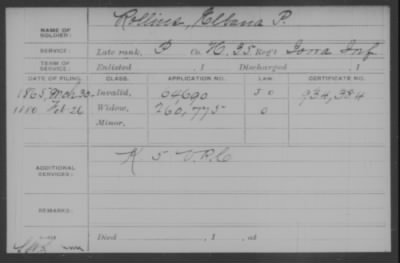 Rollins, P.
NAME OF SOLDIER:
SERVICE: Late rank, P Co. H, 35 Reg't Iowa Inf
TERM OF SERVICE: Enlisted , 1 Discharged , 1
DATE OF FILING. CLASS. APPLICATION NO. LAW CERTIFICATE NO.
1865, Mch 30 Invalid, 64690 934,384
1880 Feb 26 Widow, 260,775 0
Minor,
ADDITIONAL SERVICES: K 5 V.R.C
REMARKS:
Died , 1 , at